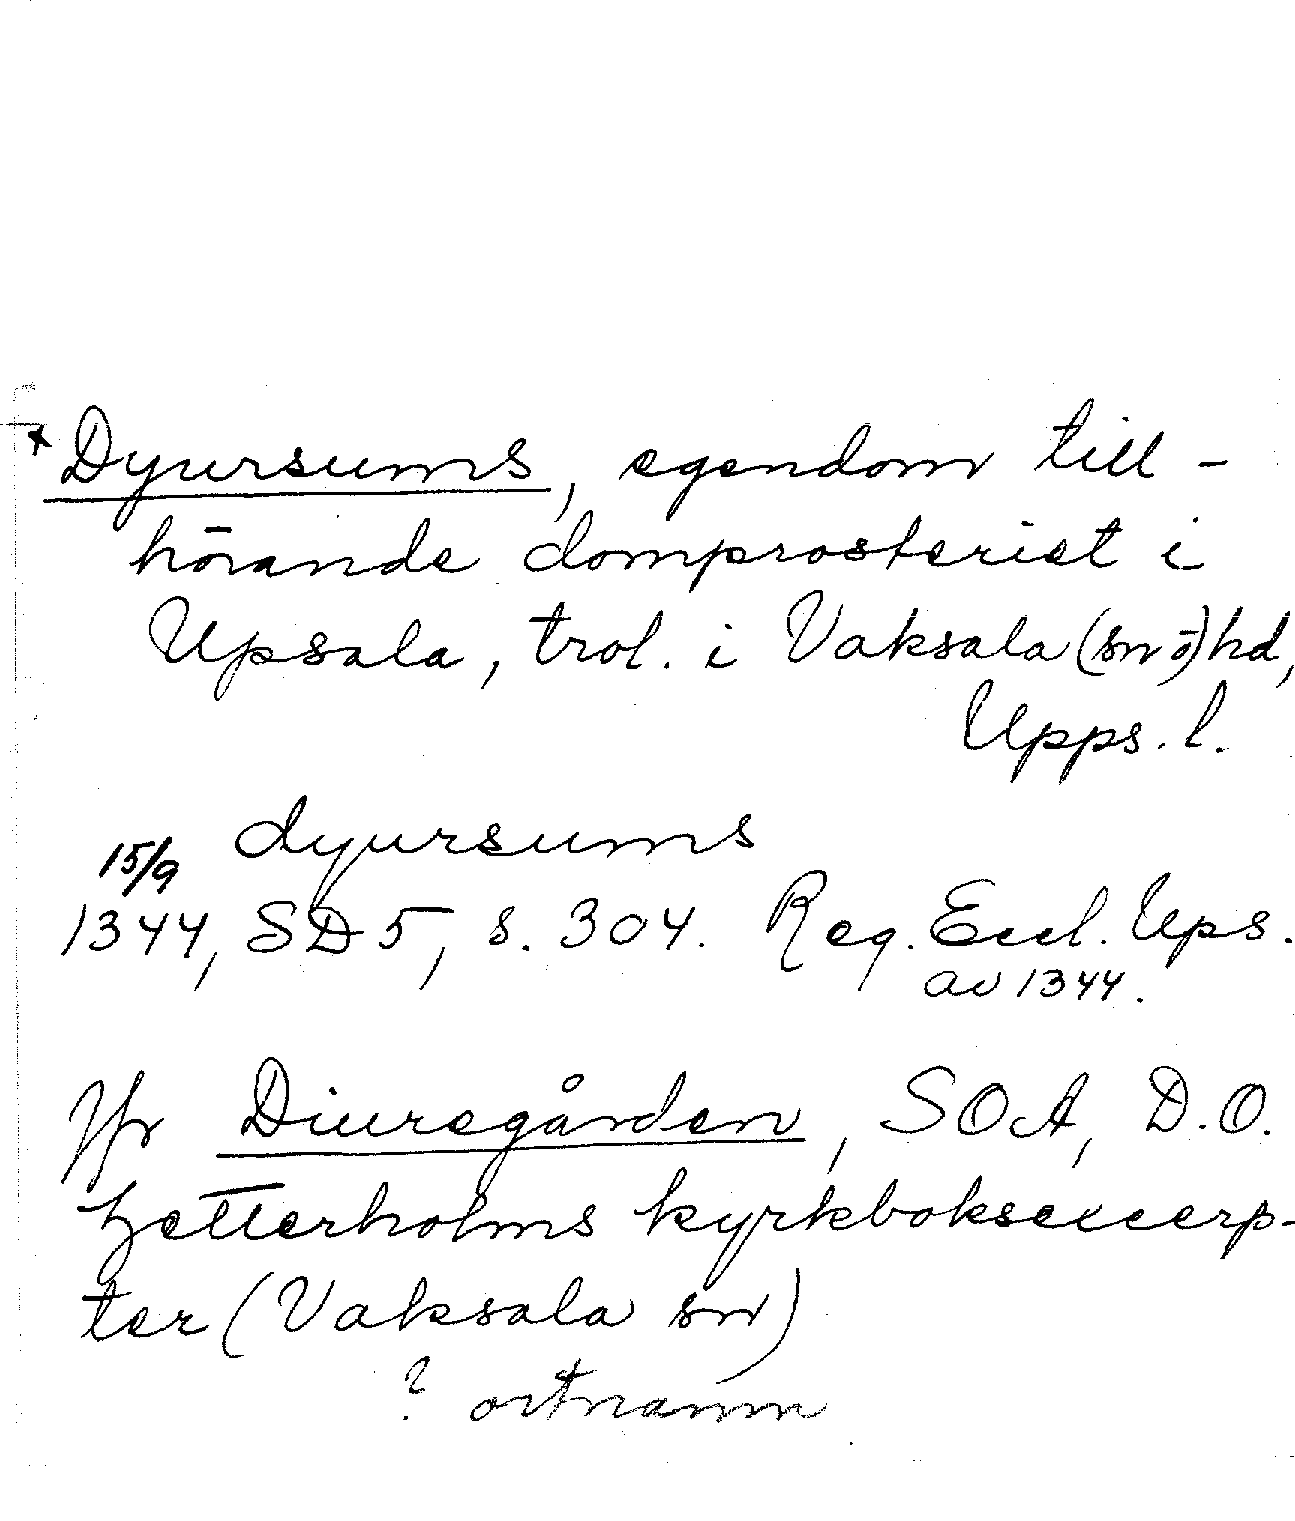 * Dyursums, egendom till-
hörande domprosteriet i
Upsala, trol. i Vaksala (sn ö) hd,
Upps. l.
dyursums
15/9
1344, SD 5, s. 304. Reg. Eccl. Ups.
av 1344.
Jfr Diuregården, SOA, D.O.
Zetterholms kyrkboksexcerp-
ter (Vaksala sn)
? ortnamn